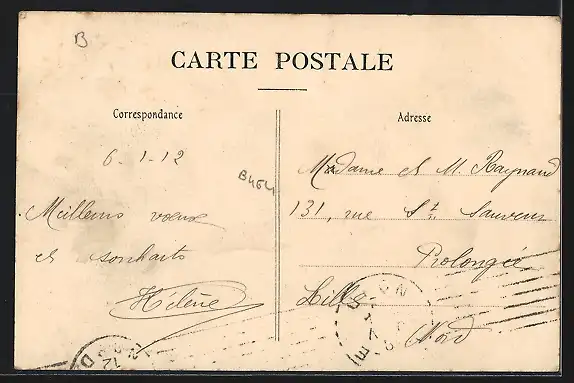 B
CARTE POSTALE
Correspondance
Adresse
6-1-12
B464
Meilleurs voeux
et souhaits
Hélène
Madame et M. Raynaud
131, rue St. Sauveur
Prolongée
Lille
Nord